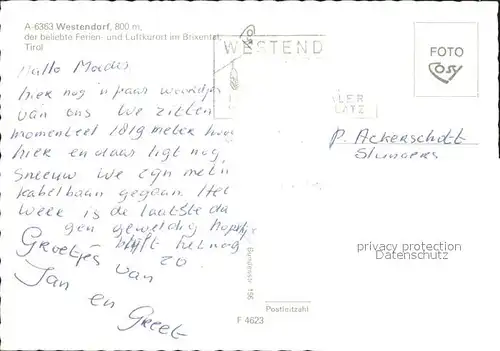 A-6363 Westendorf, 800 m,
der beliebte Ferien- und Luftkurort im Brixental,
Tirol
WESTEND
FOTO
Cosy
LER
LATZ
Hallo
hier nog 'n paar woordjes
van ons we zitten
momenteel 1819 meter
hier en daar ligt nog
sneeuw we zijn met 'n
kabelbaan gegaan. Het
weer is de laatste da
gen geweldig
blijft het nog
zo.
Groetjes van
Jan en Greet
P. Ackerschott
privacy protection
Datenschutz
Bundesstr. 156
Postleitzahl
F 4623